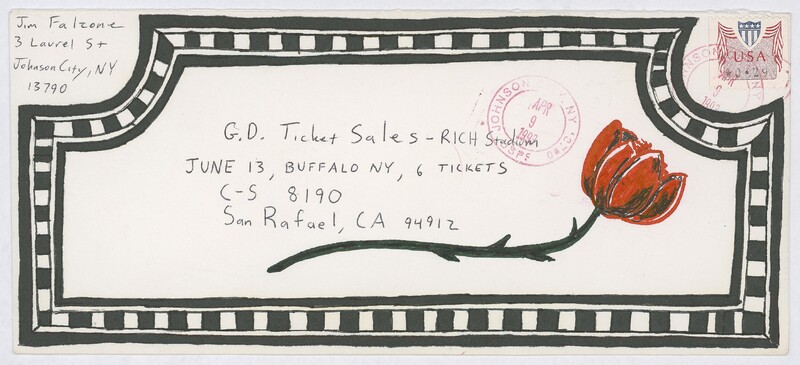 Jim Falzone
3 Laurel St
Johnson City, NY
13790
USA
0.29
JOHNSON NY
APR
9
1993
USPS
G.D. Ticket Sales - RICH Stadium
JUNE 13, BUFFALO NY, 6 TICKETS
C-S 8190
San Rafael, CA 94912